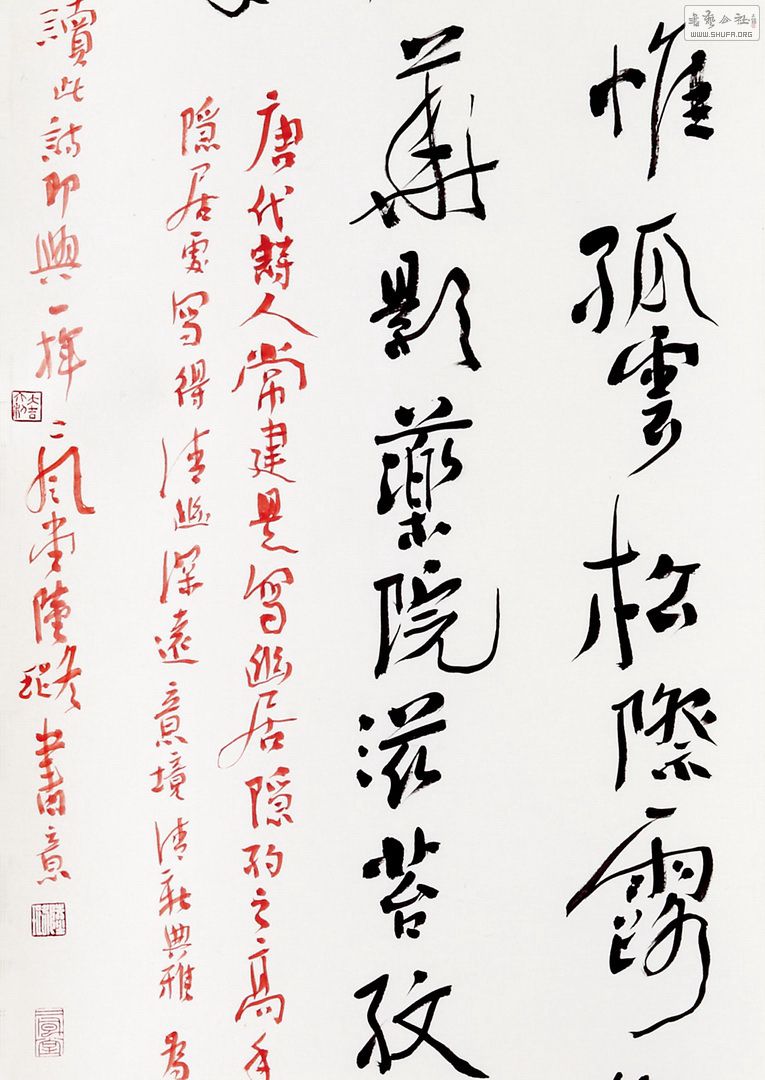 惟孤雲松際露
華影藥院滋苔紋
唐代詩人常建是寫幽居隱約之高手
隱居處寫得清幽深遠意境清新典雅為
讀此詩即興一揮
二風堂陸璐書意
書艺公社
WWW.SHUFA.ORG